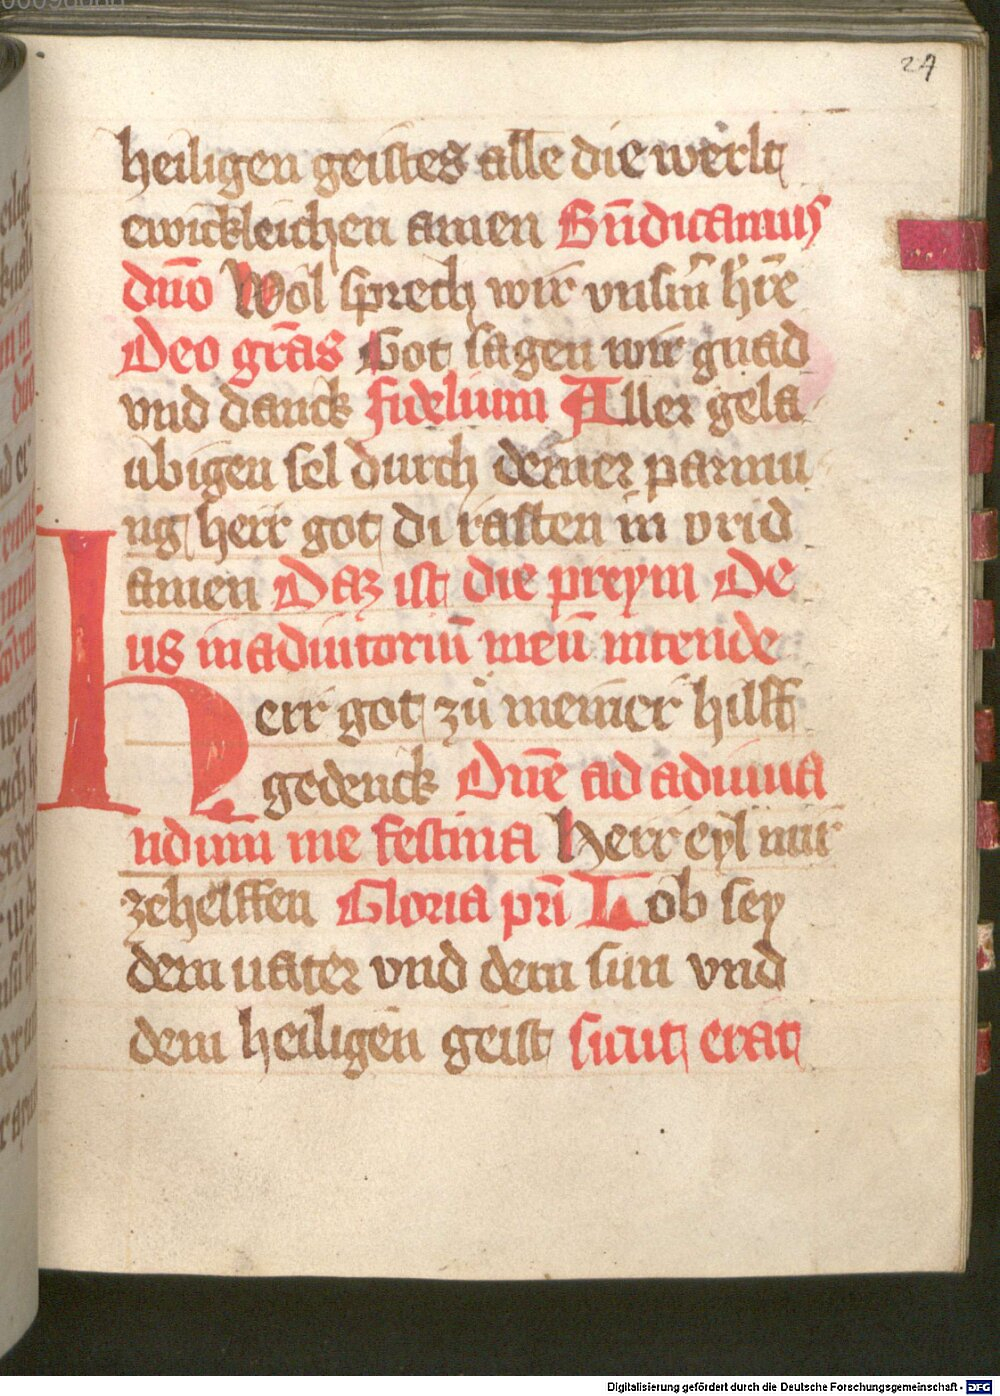 24
heiligen geistes alle die werlt
ewickleichen amen Bn̄dicamus
dn̄o Wol sprech wir vnsm̄ h're
Deo gr̄as Got sagen wir gnad
vnd danck fidelium Aller gela
ubigen sel durch deiner parmu
ng herr got di rasten in vrid
amen Daz ist die preym De
us in adiutoriū meū intende
herr got zů meiner hilff
gedenck Dn̄e ad adiuua
ndum me festina Herr eyl mir
zehelffen Gloria pr̄i Lob sey
dem uater vnd dem sun vnd
dem heiligen geist sicut erat
Digitalisierung gefördert durch die Deutsche Forschungsgemeinschaft - DFG